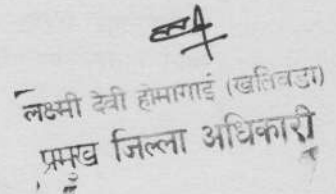 लक्ष्मी देवी होमागाईं (खतिवडा)
प्रमुख जिल्ला अधिकारी